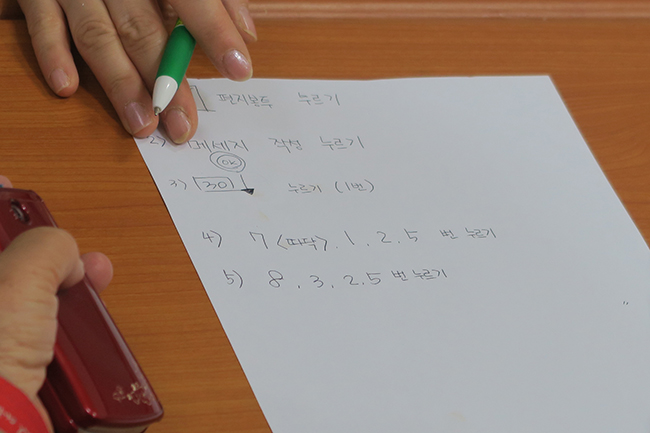 편지봉투 누르기
2) 메세지 작성 누르기
OK
3) 30 누르기 (1번)
4) 7 <따닥>, 1, 2, 5 번 누르기
5) 8, 3, 2, 5 번 누르기